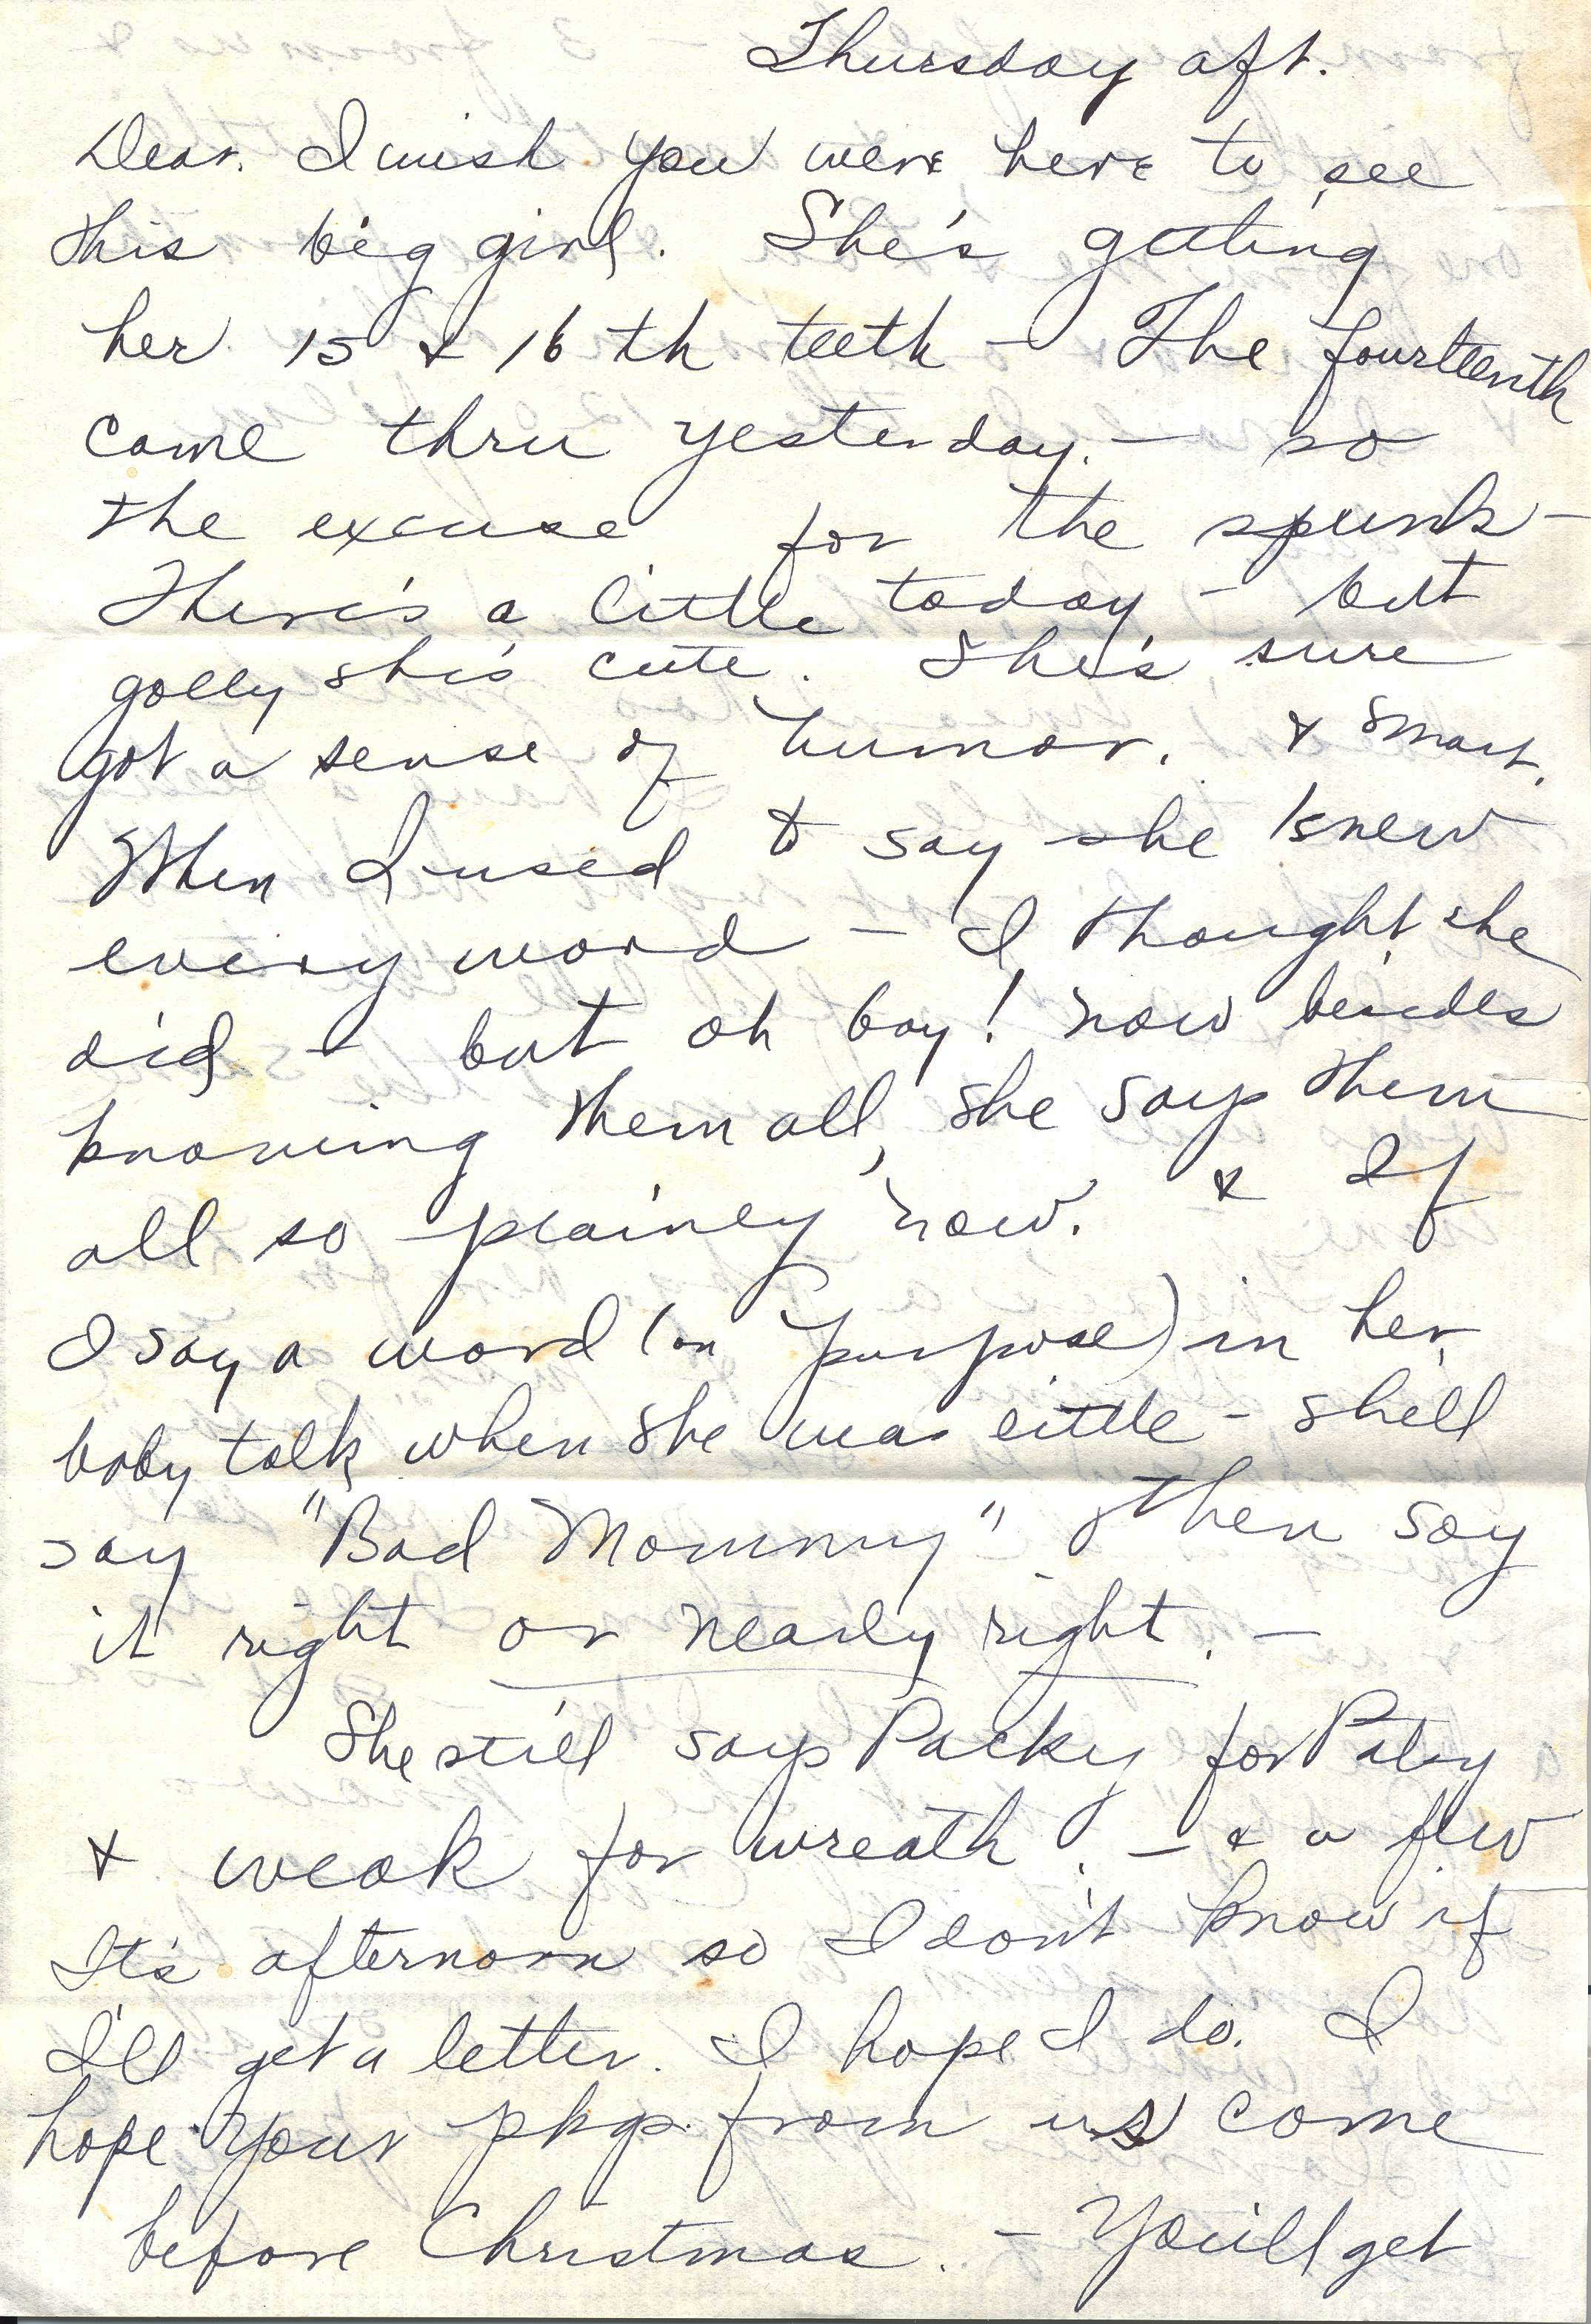 Thursday aft.
Dear. I wish you were here to see
this big girl. She's getting
her 15 & 16 th teeth - The fourteenth
came thru yesterday. - so
the excuse for the spunk -
There's a little today - but
golly she's cute. She's sure
got a sense of humor. & smart.
When I used to say she knew
every word - I thought she
did - but oh boy! now besides
knowing them all, she says them
all so plainly now. & If
I say a word (on purpose) in her
baby talk when she was little - she'll
say "Bad Mommy" & then say
it right or nearly right. -
She still says Packy for Patsy
& weak for wreath. - & a few
It's afternoon so I don't know if
I'll get a letter. I hope I do. I
hope your pkgs. from us come
before Christmas. - You'll get